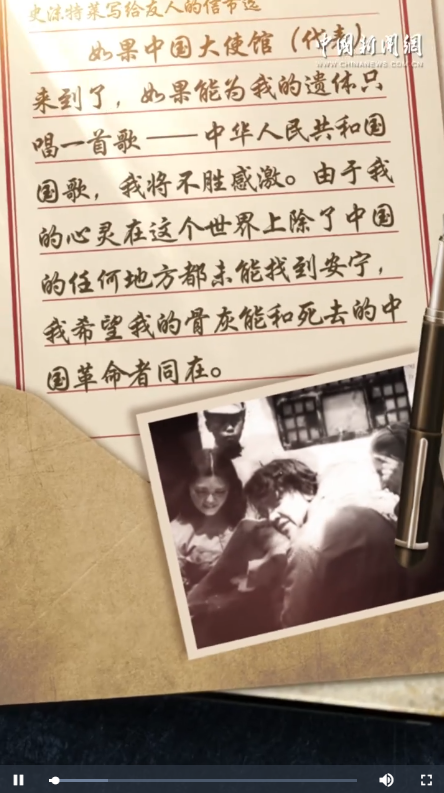 史沫特莱写给友人的信节选
如果中国大使馆（代表）
中国新闻网
WWW.CHINANEWS.COM.CN
来到了，如果能为我的遗体只
唱一首歌——中华人民共和国
国歌，我将不胜感激。由于我
的心灵在这个世界上除了中国
的任何地方都未能找到安宁，
我希望我的骨灰能和死去的中
国革命者同在。